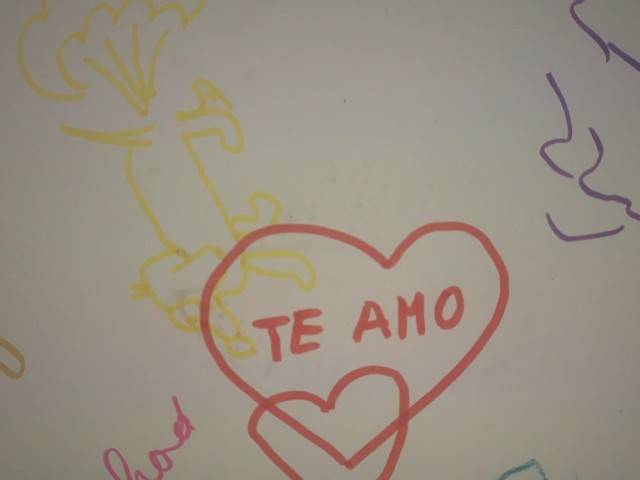 TE AMO